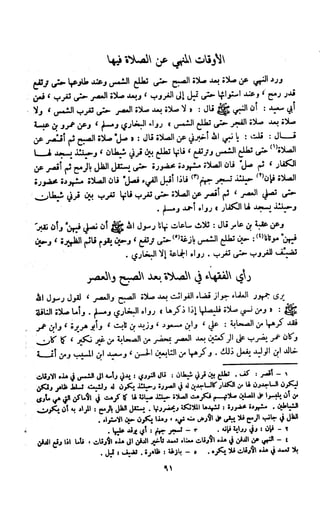 الأوقات المنهي عن الصلاة فيها
ورد النهي عن صلاة بعد صلاة الصبح حتى تطلع الشمس وعند طلوعها حتى ترتفع
قدر رمح ، وعند استوائها حتى تميل إلى الغروب ، وبعد صلاة العصر حتى تغرب ، فعن
أبي سعيد : أن النبي ﷺ قال : « لا صلاة بعد صلاة العصر حتى تغرب الشمس ، ولا
صلاة بعد صلاة الفجر حتى تطلع الشمس » رواه البخاري ومسلم ، وعن عمرو بن عبسة
قال : قلت : يا نبي الله أخبرني عن الصلاة قال : « صل صلاة الصبح ثم أقصر عن
الصلاة (١) حتى تطلع الشمس وترتفع ، فإنها تطلع بين قرني شيطان ، وحينئذ يسجد لها
الكفار ، ثم صل فإن الصلاة مشهودة محضورة حتى يستقل الظل بالرمح ثم أقصر عن
الصلاة فإن (٢) حينئذ تسجر جهنم (٣) فإذا أقبل الفيء فصل فإن الصلاة مشهودة محضورة
حتى تصلي العصر ، ثم أقصر عن الصلاة حتى تغرب فإنها تغرب بين قرني شيطان
وحينئذ يسجد لها الكفار » رواه أحمد ومسلم .
وعن عقبة بن عامر قال : ثلاث ساعات نهانا رسول الله ﷺ أن نصلي فيهن وأن نقبر
فيهن موتانا (٤) : حين تطلع الشمس بازغة (٥) حتى ترتفع ، وحين يقوم قائم الظهيرة ، وحين
تضيف للغروب حتى تغرب . رواه الجماعة إلا البخاري .
رأي الفقهاء في الصلاة بعد الصبح والعصر
يرى جمهور العلماء جواز قضاء الفوائت بعد صلاة الصبح والعصر ، لقول رسول الله
ﷺ : « ومن نسي صلاة فليصلها إذا ذكرها » رواه البخاري ومسلم . وأما صلاة النافلة
فقد كرهها من الصحابة : علي ، وابن مسعود ، وزيد بن ثابت ، وأبو هريرة ، وابن عمر
وكان عمر يضرب على الركعتين بعد العصر بمحضر من الصحابة من غير نكير ، كما كان
خالد ابن الوليد يفعل ذلك . وكرهها من التابعين الحسن ، وسعيد ابن المسيب ومن أئمة
١ - أقصر : كف . تطلع بين قرني شيطان : قال النووي : يدني رأسه الى الشمس في هذه الاوقات
ليكون الساجدون لها من الكفار كالساجدين له في الصورة وحينئذ يكون له ولشيعته تسلط ظاهر وتمكن
من أن يلبسوا على المصلين صلاتهم فكرهت الصلاة حينئذ صيانة لها كما كرهت في الأماكن التي هي مأوى
الشياطين . مشهودة محضورة : تشهدها الملائكة ويحضرونها . يستقل الظل بالرمح : المراد به أن يكون
الظل في جانب الرمح فلا يبقى على الأرض منه شيء ، وهذا يكون حين الاستواء .
٢ - فإن : وفي رواية فإنه . ٣ - تسجر جهنم : أي يوقد عليها .
٤ - النهي عن الدفن في هذه الأوقات معناه تعمد تأخير الدفن الى هذه الأوقات ، فأما إذا وقع الدفن
بلا تعمد في هذه الأوقات فلا يكره . ٥ - بازغة : ظاهرة . تضيف : تميل .
٩١